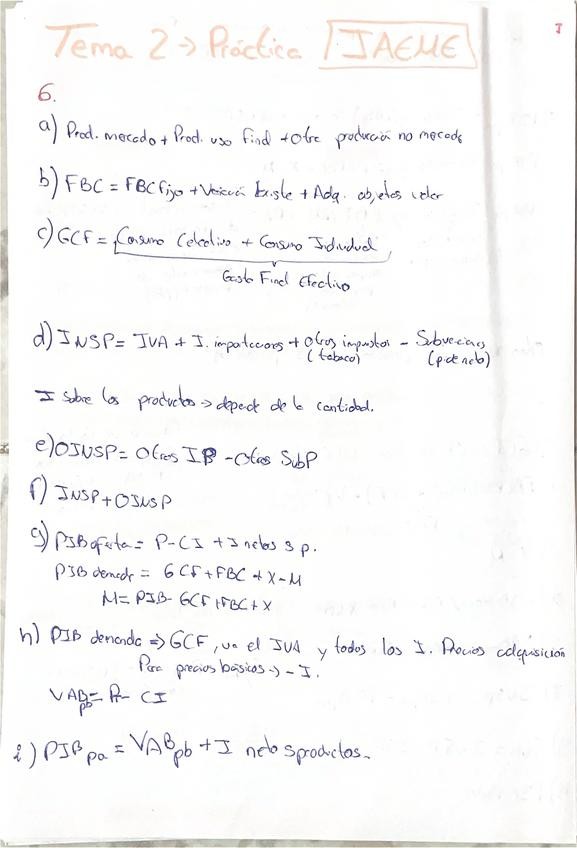 I
Tema 2 → Práctica JAEME
6.
a) Prod. mercado + Prod. uso final + Otra producción no mercado
b) FBC = FBC fijo + Variación Existe + Adq. objetos valor
c) GCF = Consumo Colectivo + Consumo Individual
Gasto Final Efectivo
d) INSP = IVA + I. importaciones + Otros impuestos - Subvenciones
(tabaco) (p.de neto)
I sobre los productos → depend de la cantidad.
e) OINSP = Otros IP - Otras SubP
f) INSP + OINSP
g) PIB oferta = P - CI + I netos s p.
PIB demanda = GCF + FBC + X - M
M = PIB - GCF + FBC + X
h) PIB demanda ⇒ GCF, va el IVA y todos los I. Precios adquisición
Para precios básicos → - I.
VAB pb = P - CI
i) PIB pa = VAB pb + I neto sproductos.